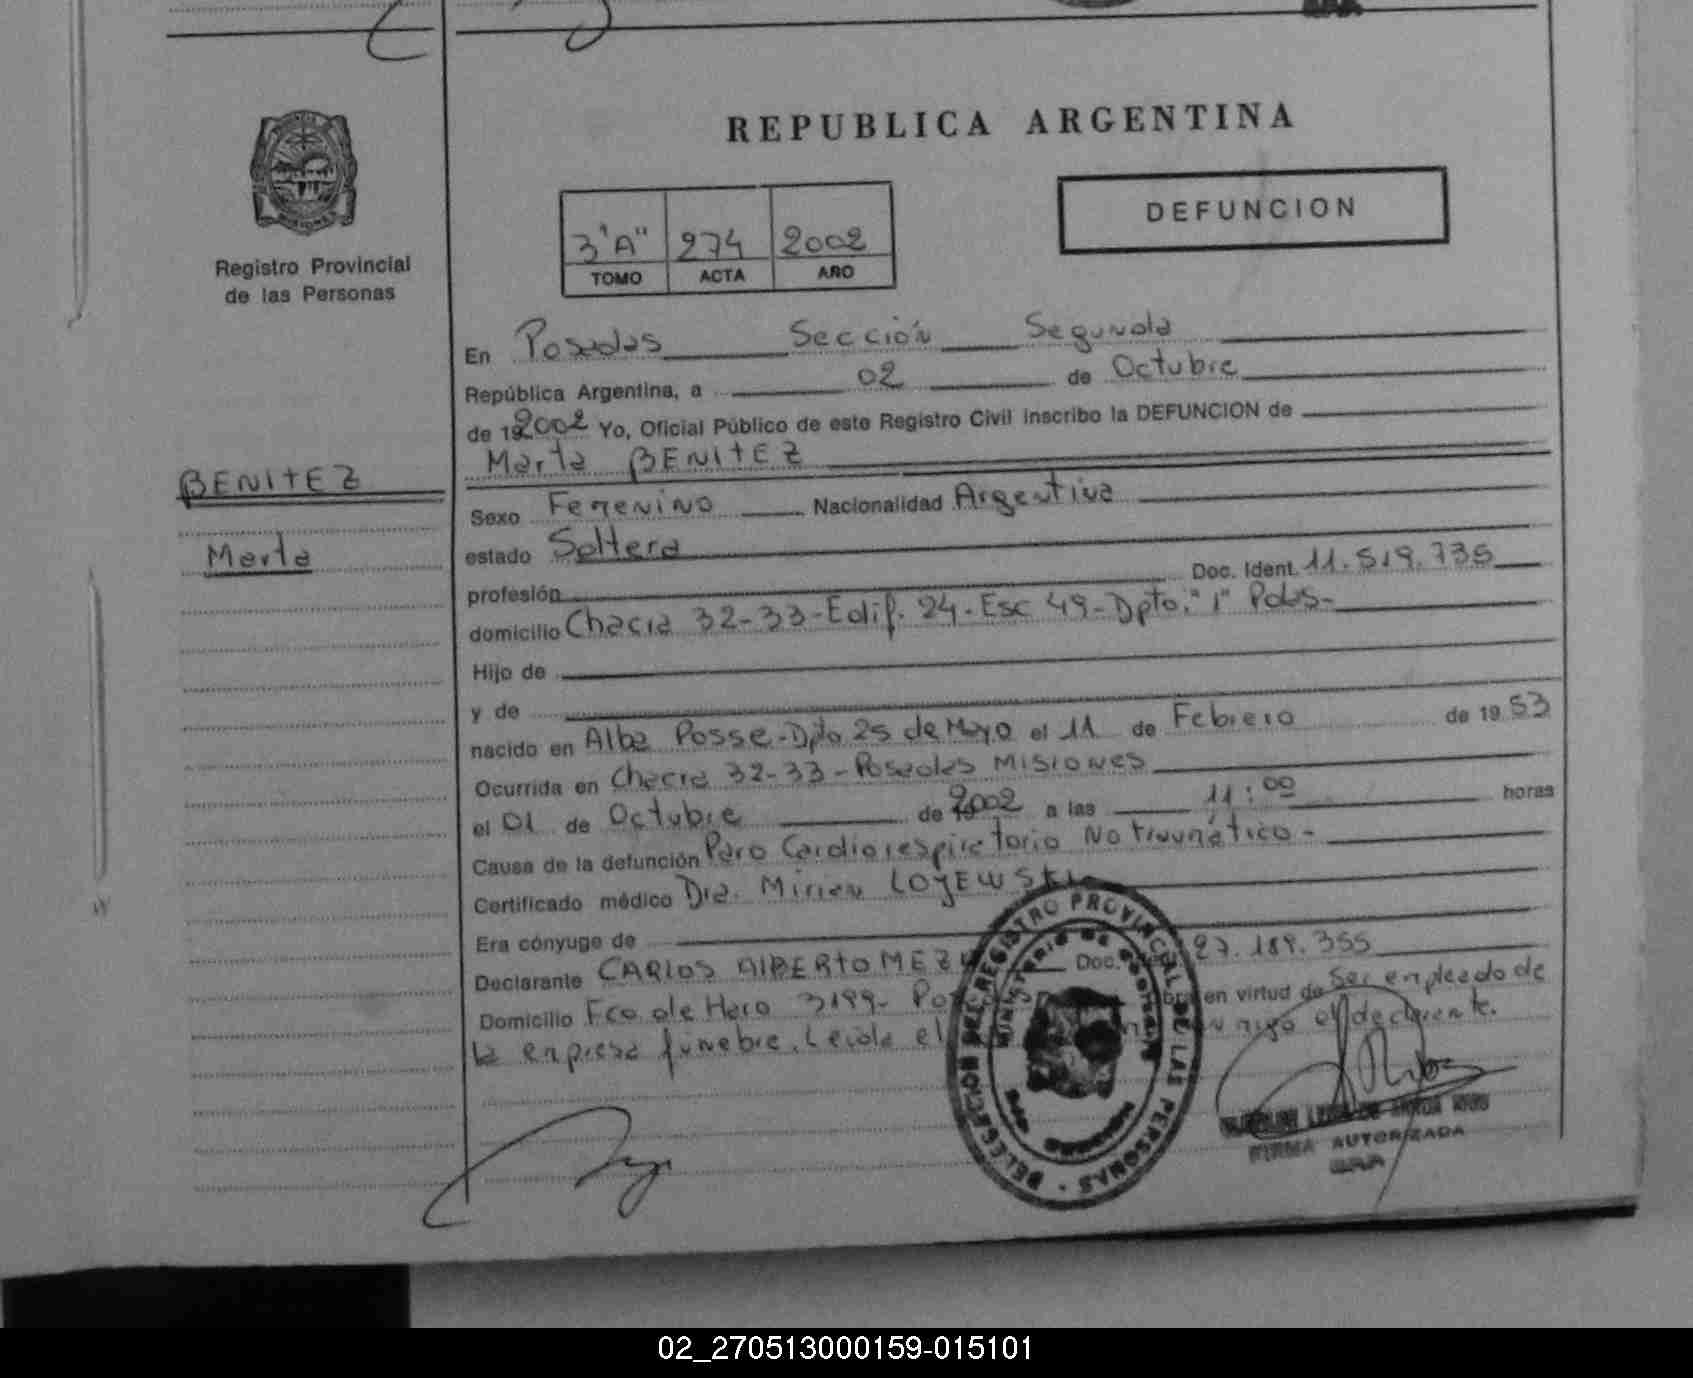 REPUBLICA ARGENTINA
DEFUNCION
Registro Provincial
de las Personas
3 "A" 274 2002
TOMO ACTA AÑO
En Posadas Sección Segunda
República Argentina, a 02 de Octubre
de 192002 Yo, Oficial Público de este Registro Civil inscribo la DEFUNCION de
Marta BENITEZ
BENITEZ
Marta
Sexo Femenino Nacionalidad Argentina
estado Soltera
profesión Doc. Ident. 11.519.735
domicilio Chacra 32-33-Edif. 24-Esc 49-Dpto. "1" Pdas-
Hijo de
y de
nacido en Alba Posse-Dpto 25 de Mayo el 11 de Febrero de 1953
Ocurrida en Chacra 32-33-Posadas MISIONES
el 01 de Octubre de 2002 a las 11:00 horas
Causa de la defunción Paro Cardiorespiratorio No traumático-
Certificado médico Dra. Mirian LOYEWSKI
Era cónyuge de
Declarante CARLOS ALBERTO Doc. 27.189.355
Domicilio Fco de Haro 3199- en virtud de Ser empleado de
la empresa funebre. Leida el el declarante.
DELEGACION DEL REGISTRO PROVINCIAL DE LAS PERSONAS
MINISTERIO DE GOBIERNO
FIRMA AUTORIZADA
02_270513000159-015101